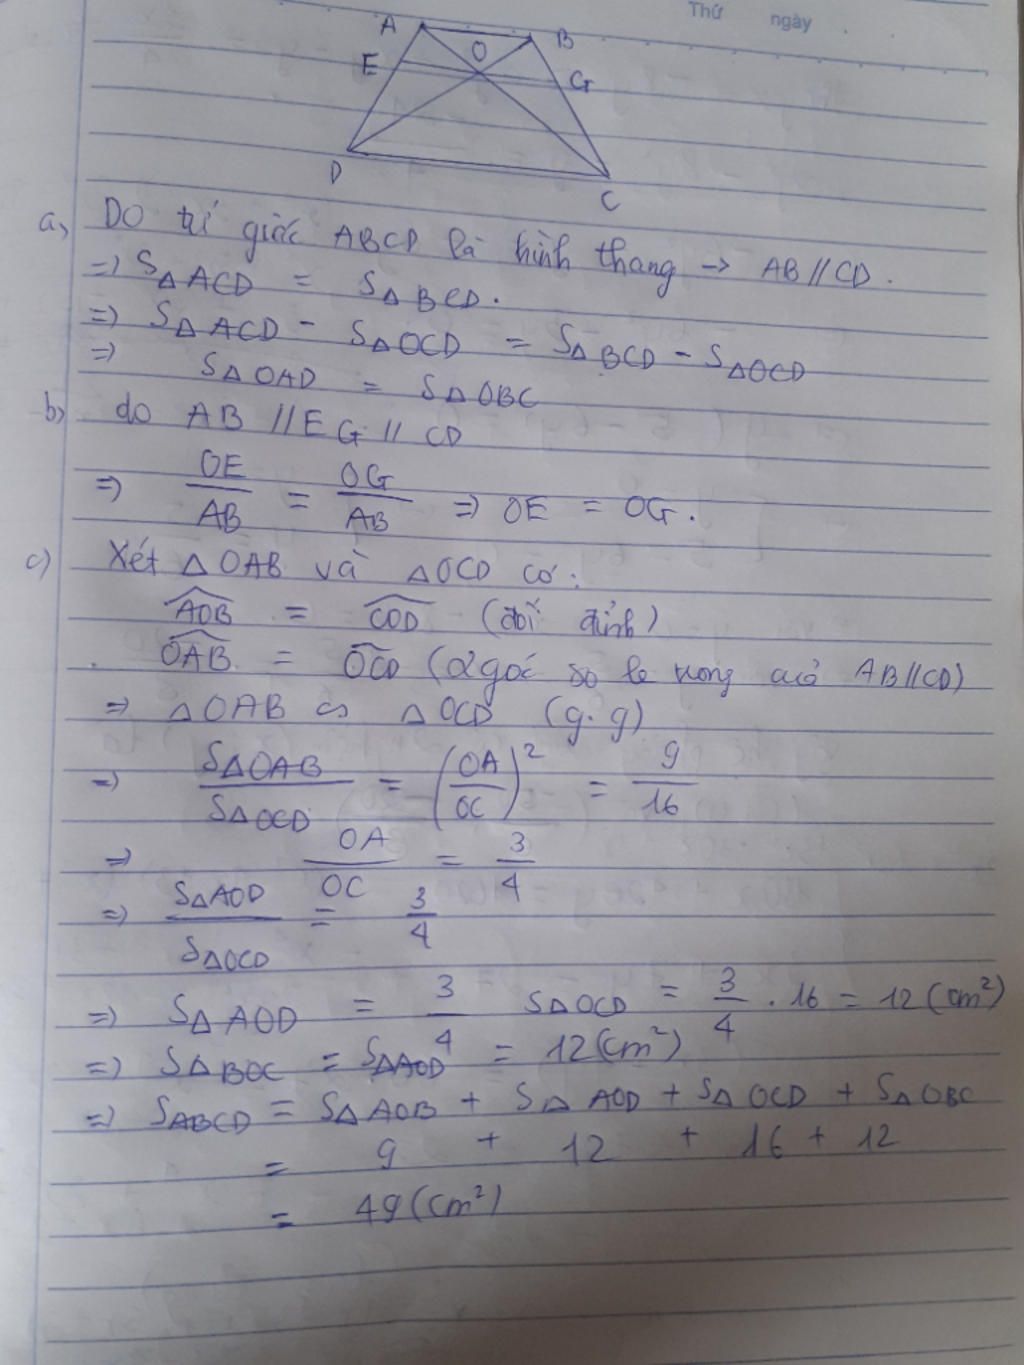 Thứ ngày
A B
E O G
D C
a, Do tứ giác ABCD là hình thang → AB // CD.
=> S△ACD = S△BCD.
=> S△ACD - S△OCD = S△BCD - S△OCD
=> S△OAD = S△OBC
b, do AB // EG // CD
=> OE/AB = OG/AB => OE = OG.
c) Xét △OAB và △OCD có:
AOB = COD (đối đỉnh)
OAB = OCD (2 góc so le trong của AB//CD)
=> △OAB ∽ △OCD (g.g)
=> S△OAB/S△OCD = (OA/OC)² = 9/16
=> OA/OC = 3/4
=> S△AOD/S△OCD = 3/4
=> S△AOD = 3/4 S△OCD = 3/4 . 16 = 12 (cm²)
=> S△BOC = S△AOD = 12 (cm²)
=> SABCD = S△AOB + S△AOD + S△OCD + S△OBC
= 9 + 12 + 16 + 12
= 49 (cm²)